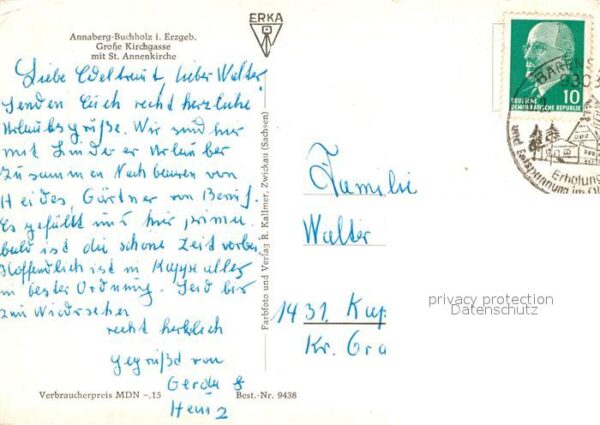 Annaberg-Buchholz i. Erzgeb.
Große Kirchgasse
mit St. Annenkirche
ERKA
Liebe Edeltraut, lieber Walter!
Senden Euch recht herzliche
Urlaubsgrüße. Wir sind hier
mit Urlauber
zusammen Nachbauern von
Heides, Gärtner von Beruf.
Es gefällt uns hier prima.
bald ist die schöne Zeit vorbei.
Hoffentlich ist in Kappe alles
in bester Ordnung. Seid bis
zum Wiedersehen
recht herzlich
gegrüßt von
Gerda &
Heinz
Verbraucherpreis MDN -,15
Best.-Nr. 9438
Farbfoto und Verlag R. Kallmer, Zwickau (Sachsen)
DEUTSCHE
DEMOKRATISCHE REPUBLIK
10
BÄRENS
9303
Erholung
und Entspannung im Ob
Familie
Walter
1431 Kap
Kr. Gra
privacy protection
Datenschutz